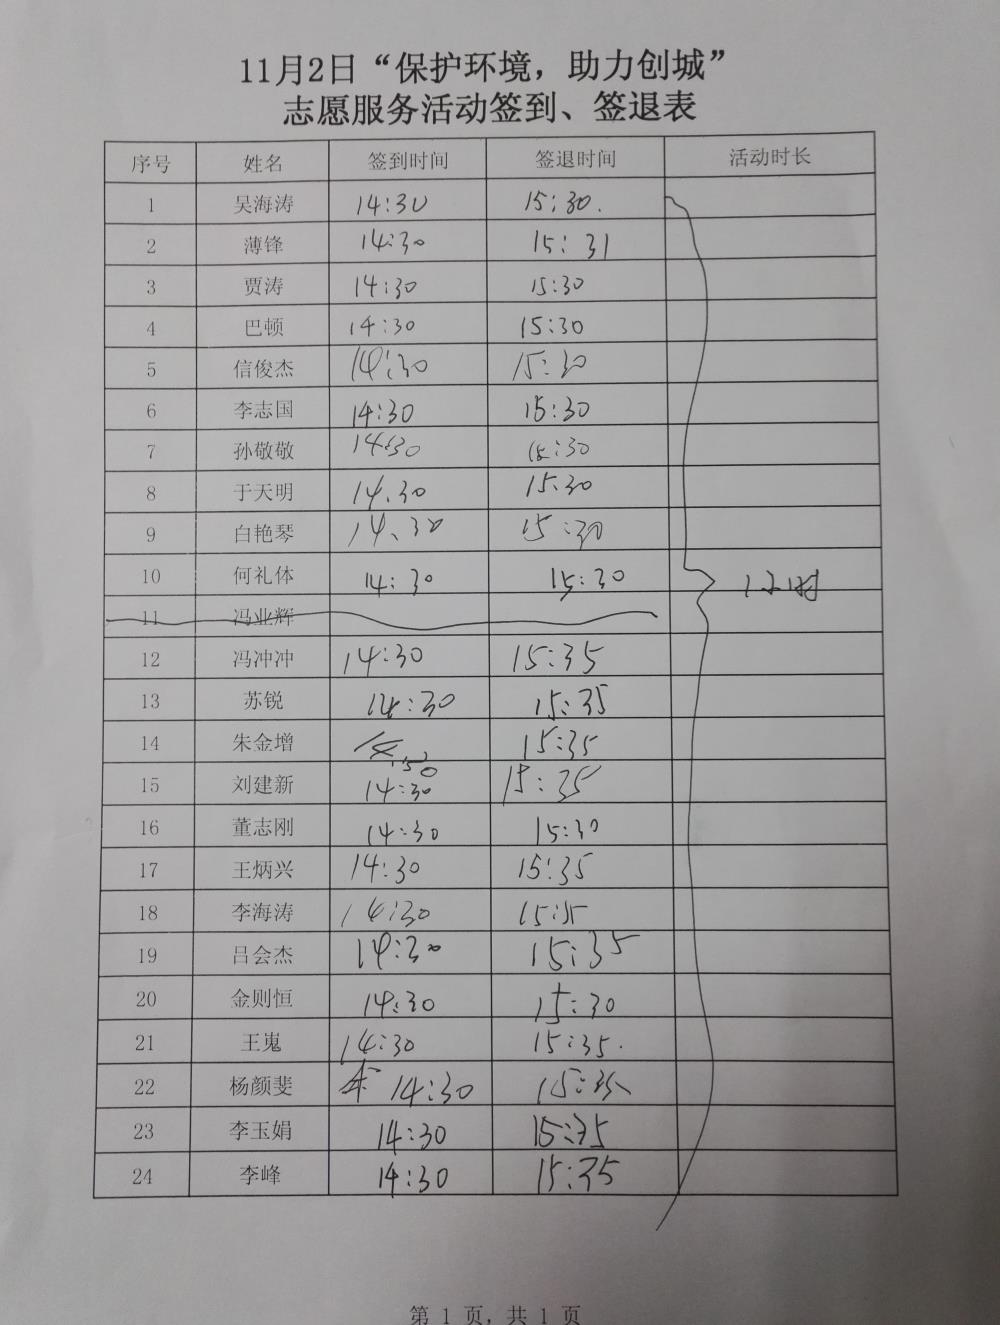 11月2日“保护环境，助力创城”
志愿服务活动签到、签退表
序号 姓名 签到时间 签退时间 活动时长
1 吴海涛 14:30 15:30.
2 薄锋 14:30 15:31
3 贾涛 14:30 15:30
4 巴顿 14:30 15:30
5 信俊杰 14:30 15:30
6 李志国 14:30 15:30
7 孙敬敬 14:30 15:30
8 于天明 14.30 15:30
9 白艳琴 14、30 15:30
10 何礼体 14:30 15:30 1小时
11 冯业辉
12 冯冲冲 14:30 15:35
13 苏锐 14:30 15:35
14 朱金增 15:35
15 刘建新 14:30 15:35
16 董志刚 14:30 15:30
17 王炳兴 14:30 15:35
18 李海涛 14:30 15:35
19 吕会杰 14:30 15:35
20 金则恒 14:30 15:30
21 王嵬 14:30 15:35.
22 杨颜斐 14:30 15:35
23 李玉娟 14:30 15:35
24 李峰 14:30 15:35
第 1 页，共 1 页